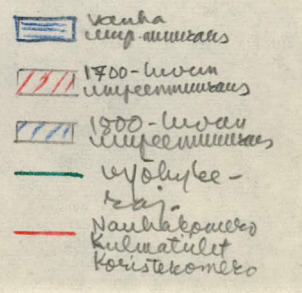 vanha
umpeenmuuraus
1700-luvun
umpeenmuuraus
1800-luvun
umpeenmuuraus
vyöhyke-
raj.
Nauhakomero
Kulmatiilet
Koristekomero